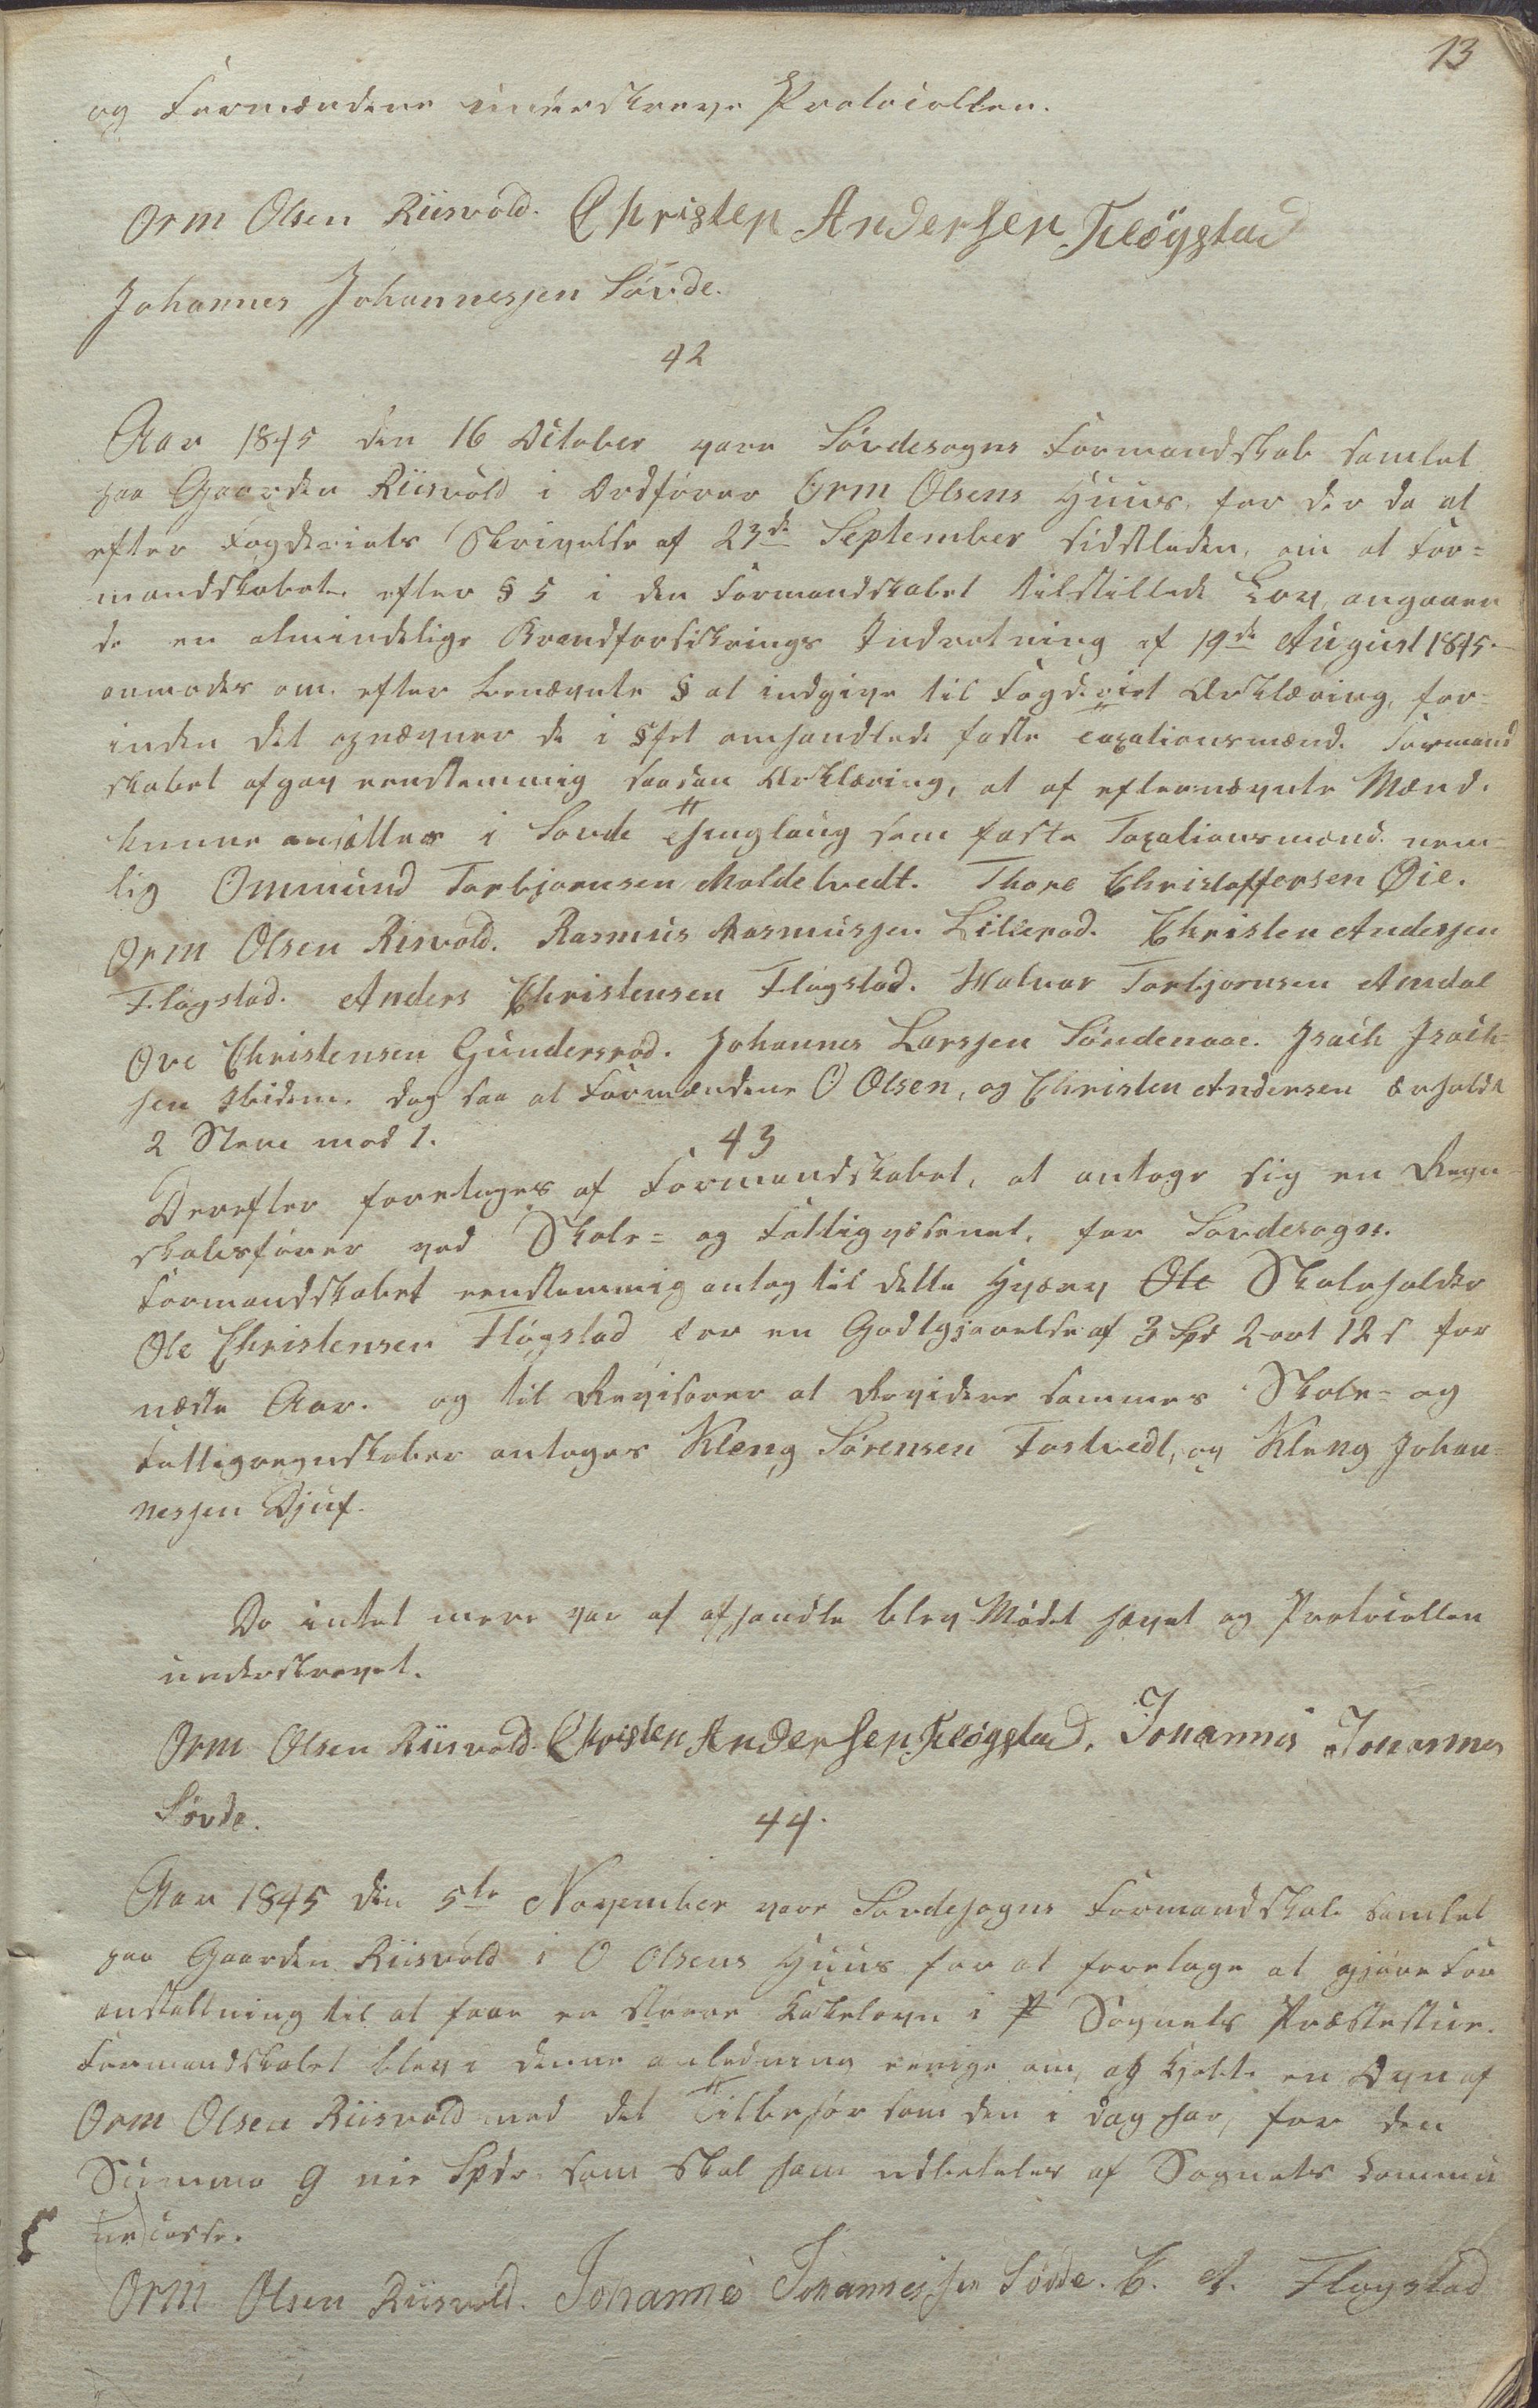 13
og Formændene underskreve Protocollen.
Orm Olsen Riisvold. Christen Andersen Fløgstad
Johannes Johannessen Søvde.
42
Aar 1845 den 16 October vare Søvdesogns Formandskab samlet
paa Gaarden Riisvold i Ordfører Orm Olsens Huus, for der da at
efter Fogderiets Skrivelse af 23de September sidstleden, om at For=
mandskabet efter § 5 i den Formandskabet tilstillede Lov, angaaen
de en almindelige Brandforsikrings Indretning af 19de August 1845.
anmodes om efter benævnte § at indgive til Fogderiet Erklæring, for=
inden det opnævner de i §fet omhandlede faste Taxationsmænd. Formand
skabet afgav eenstemmig saadan Erklæring, at af efternævnte Mænd.
kunne ansættes i Sovde Thinglaug som faste Taxationsmænd. nem=
lig Ommund Torbjørnsen Moldetvedt. Thore Christoffersen Øie.
Orm Olsen Risvold. Rasmus Rasmussen Lillerød. Christen Andersen
Fløgstad. Anders Christensen Fløgstad. Halvor Torbjørnsen Amdal
Ove Christensen Gundersrød. Johannes Larssen Søndenaae. Isach Isach=
sen ibidem. dog saa at Formændene O Olsen, og Christen Andersen erholdt
2 Stem mod 1.
43
Derefter foretoges af Formandskabet, at antage sig en Regn
skabsfører ved Skole= og Fattigvæsenet, for Sovdesogn.
Formandskabet eenstemmig antog til dette Hverv Ole Skoleholder
Ole Christensen Fløgstad for en Godtgjørelse af 3 Spd 2 ort 12 s for
næste Aar. og til Revisorer at Revidere sammes Skole= og
Fattigregnskaber antoges Kleng Sørensen Tostvedt, og Kleng Johan=
nessen Djuf.
Da intet mere var at afhandle blev Mødet hævet og Protocollen
underskrevet.
Orm Olsen Riisvold. Christen Andersen Fløgstad. Johannes Johannes
Søvde.
44.
Aar 1845 den 5te November vare Sovdesogns Formandskab samlet
paa Gaarden Riisvold i O Olsens Huus for at foretage at gjøre For
anstaltning til at faae en større Kakelovn i P Sognets Præstestue.
Formandskabet blev i denne anledning eenige om, at kjøbe en Ovn af
Orm Olsen Riisvold med det Tilbehør som den i dag har, for den
Summa 9 nie Spdr som skal ham udbetales af Sognets Commu
necasse.
Orm Olsen Riisvold. Johannes Johannessen Søvde. C. A. Fløgstad